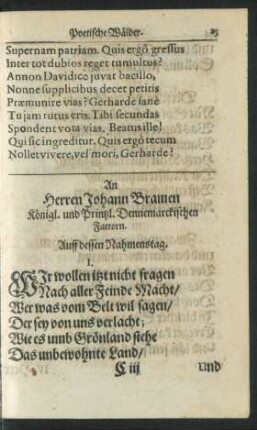 Poetische Wälder. 25
Supernam patriam. Quis ergò gressus
Inter tot dubios reget tumultus?
Annon Davidico juvat bacillo,
Nonne supplicibus decet petitis
Præmunire vias? Gerharde sanè
Tu jam tutus eris. Tibi secundas
Spondent vota vias. Beatus ille!
Qui sic ingreditur. Quis ergò tecum
Nollet vivere, vel mori, Gerharde?
An
Herren Johann Brawen
Königl. und Printzl. Dennemarckischen
Factorn.
Auff dessen Nahmenstag.
1.
WIr wollen itzt nicht fragen
Nach aller Feinde Macht/
Wer was vom Belt wil sagen/
Der sey von uns verlacht;
Wie es umb Grönland stehe
Das unbewohnte Land/
C iij und